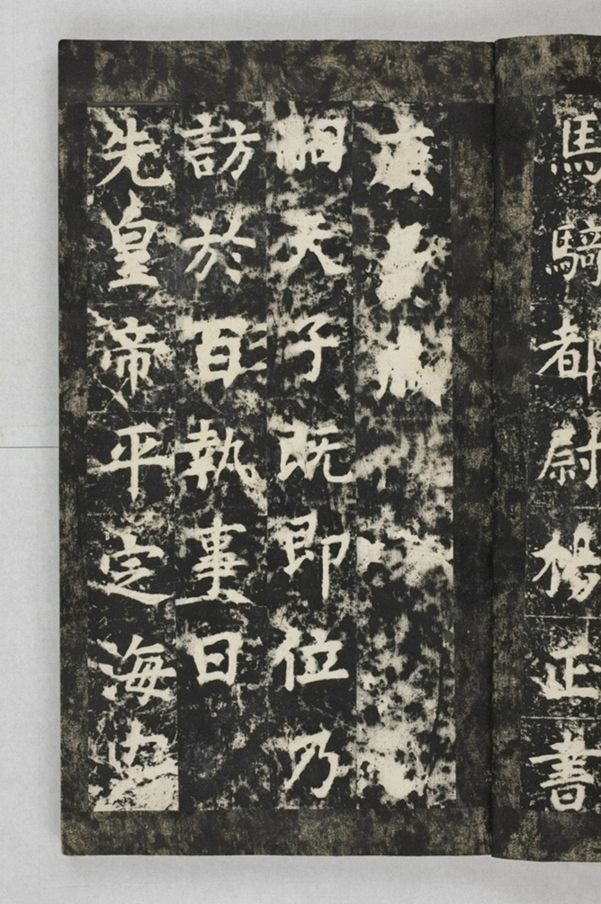 馬騎都尉楊正書
嗣天子既即位乃
訪於百執事曰
先皇帝平定海内